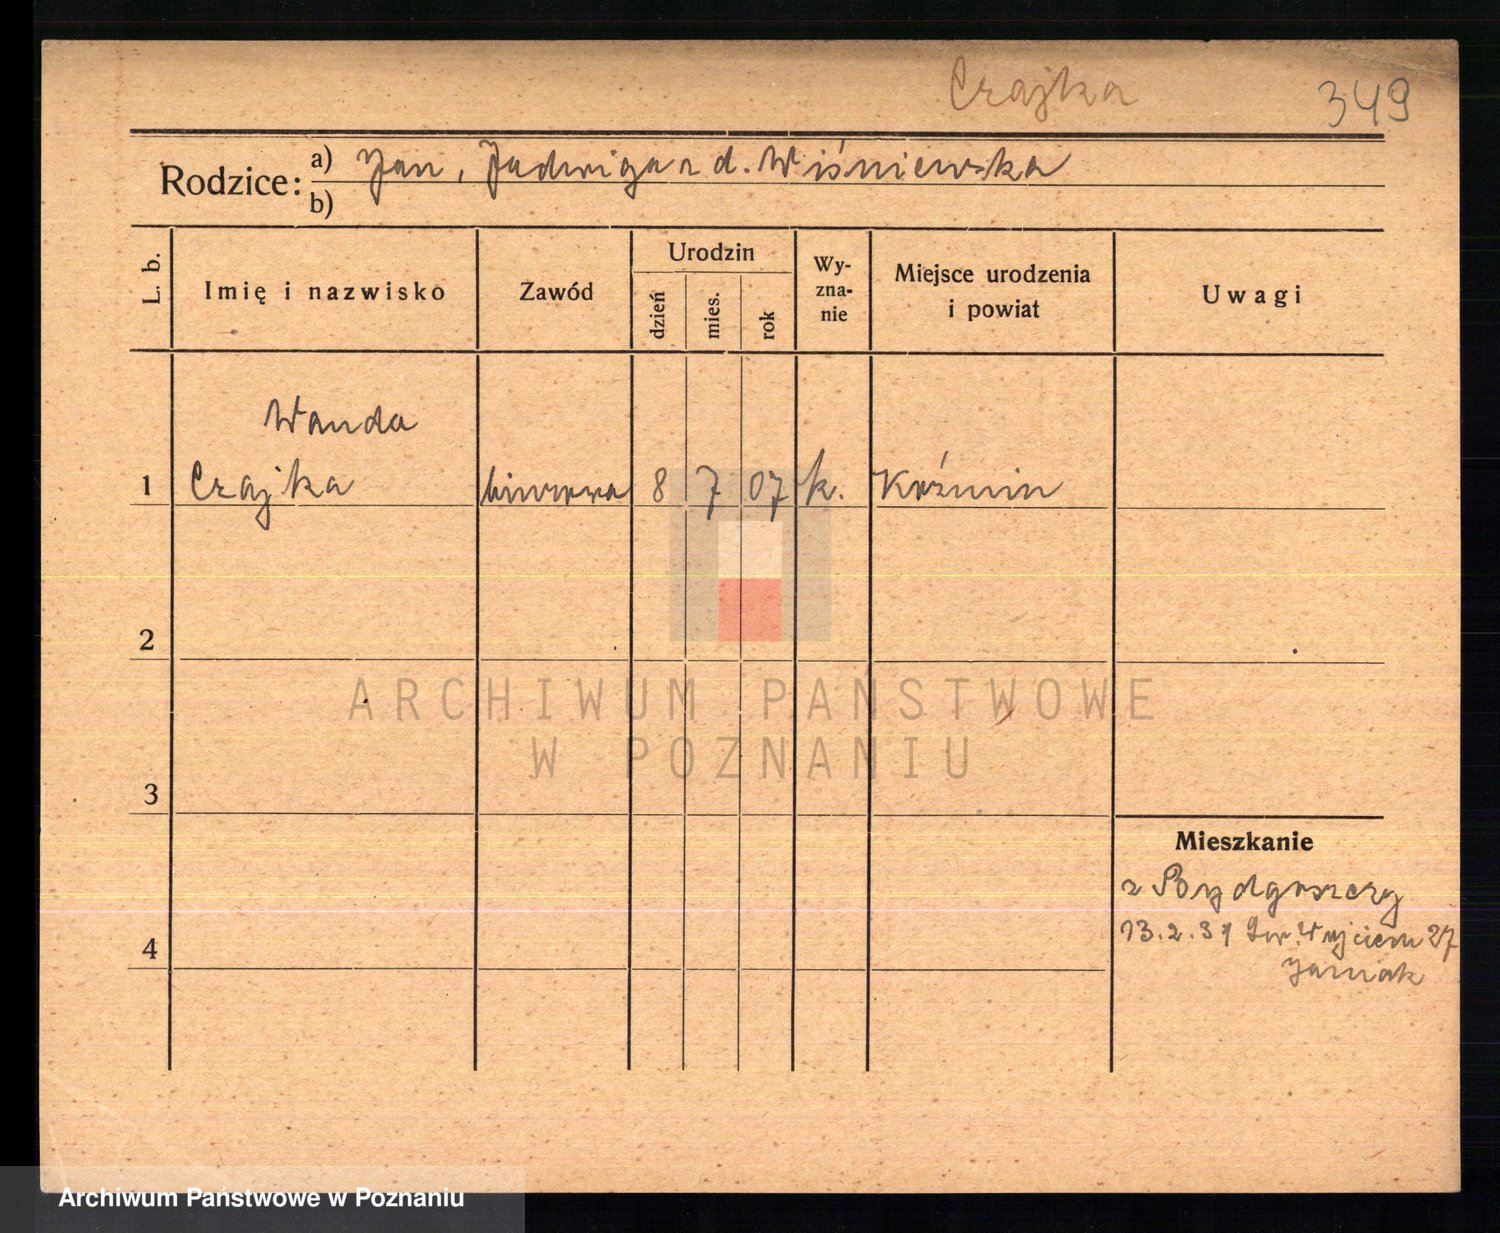 Czajka 349
Rodzice: a) Jan, Jadwiga z d. Wiśniewska
b)
L. b. Imię i nazwisko Zawód Urodzin dzień mies. rok Wy-zna-nie Miejsce urodzenia i powiat Uwagi
Wanda
1 Czajka biurowa 8 7 07 k. Koźmin
2
ARCHIWUM PAŃSTWOWE
W POZNANIU
3
Mieszkanie
z Bydgoszczy
13.2.31 27
4
Janiak
Archiwum Państwowe w Poznaniu